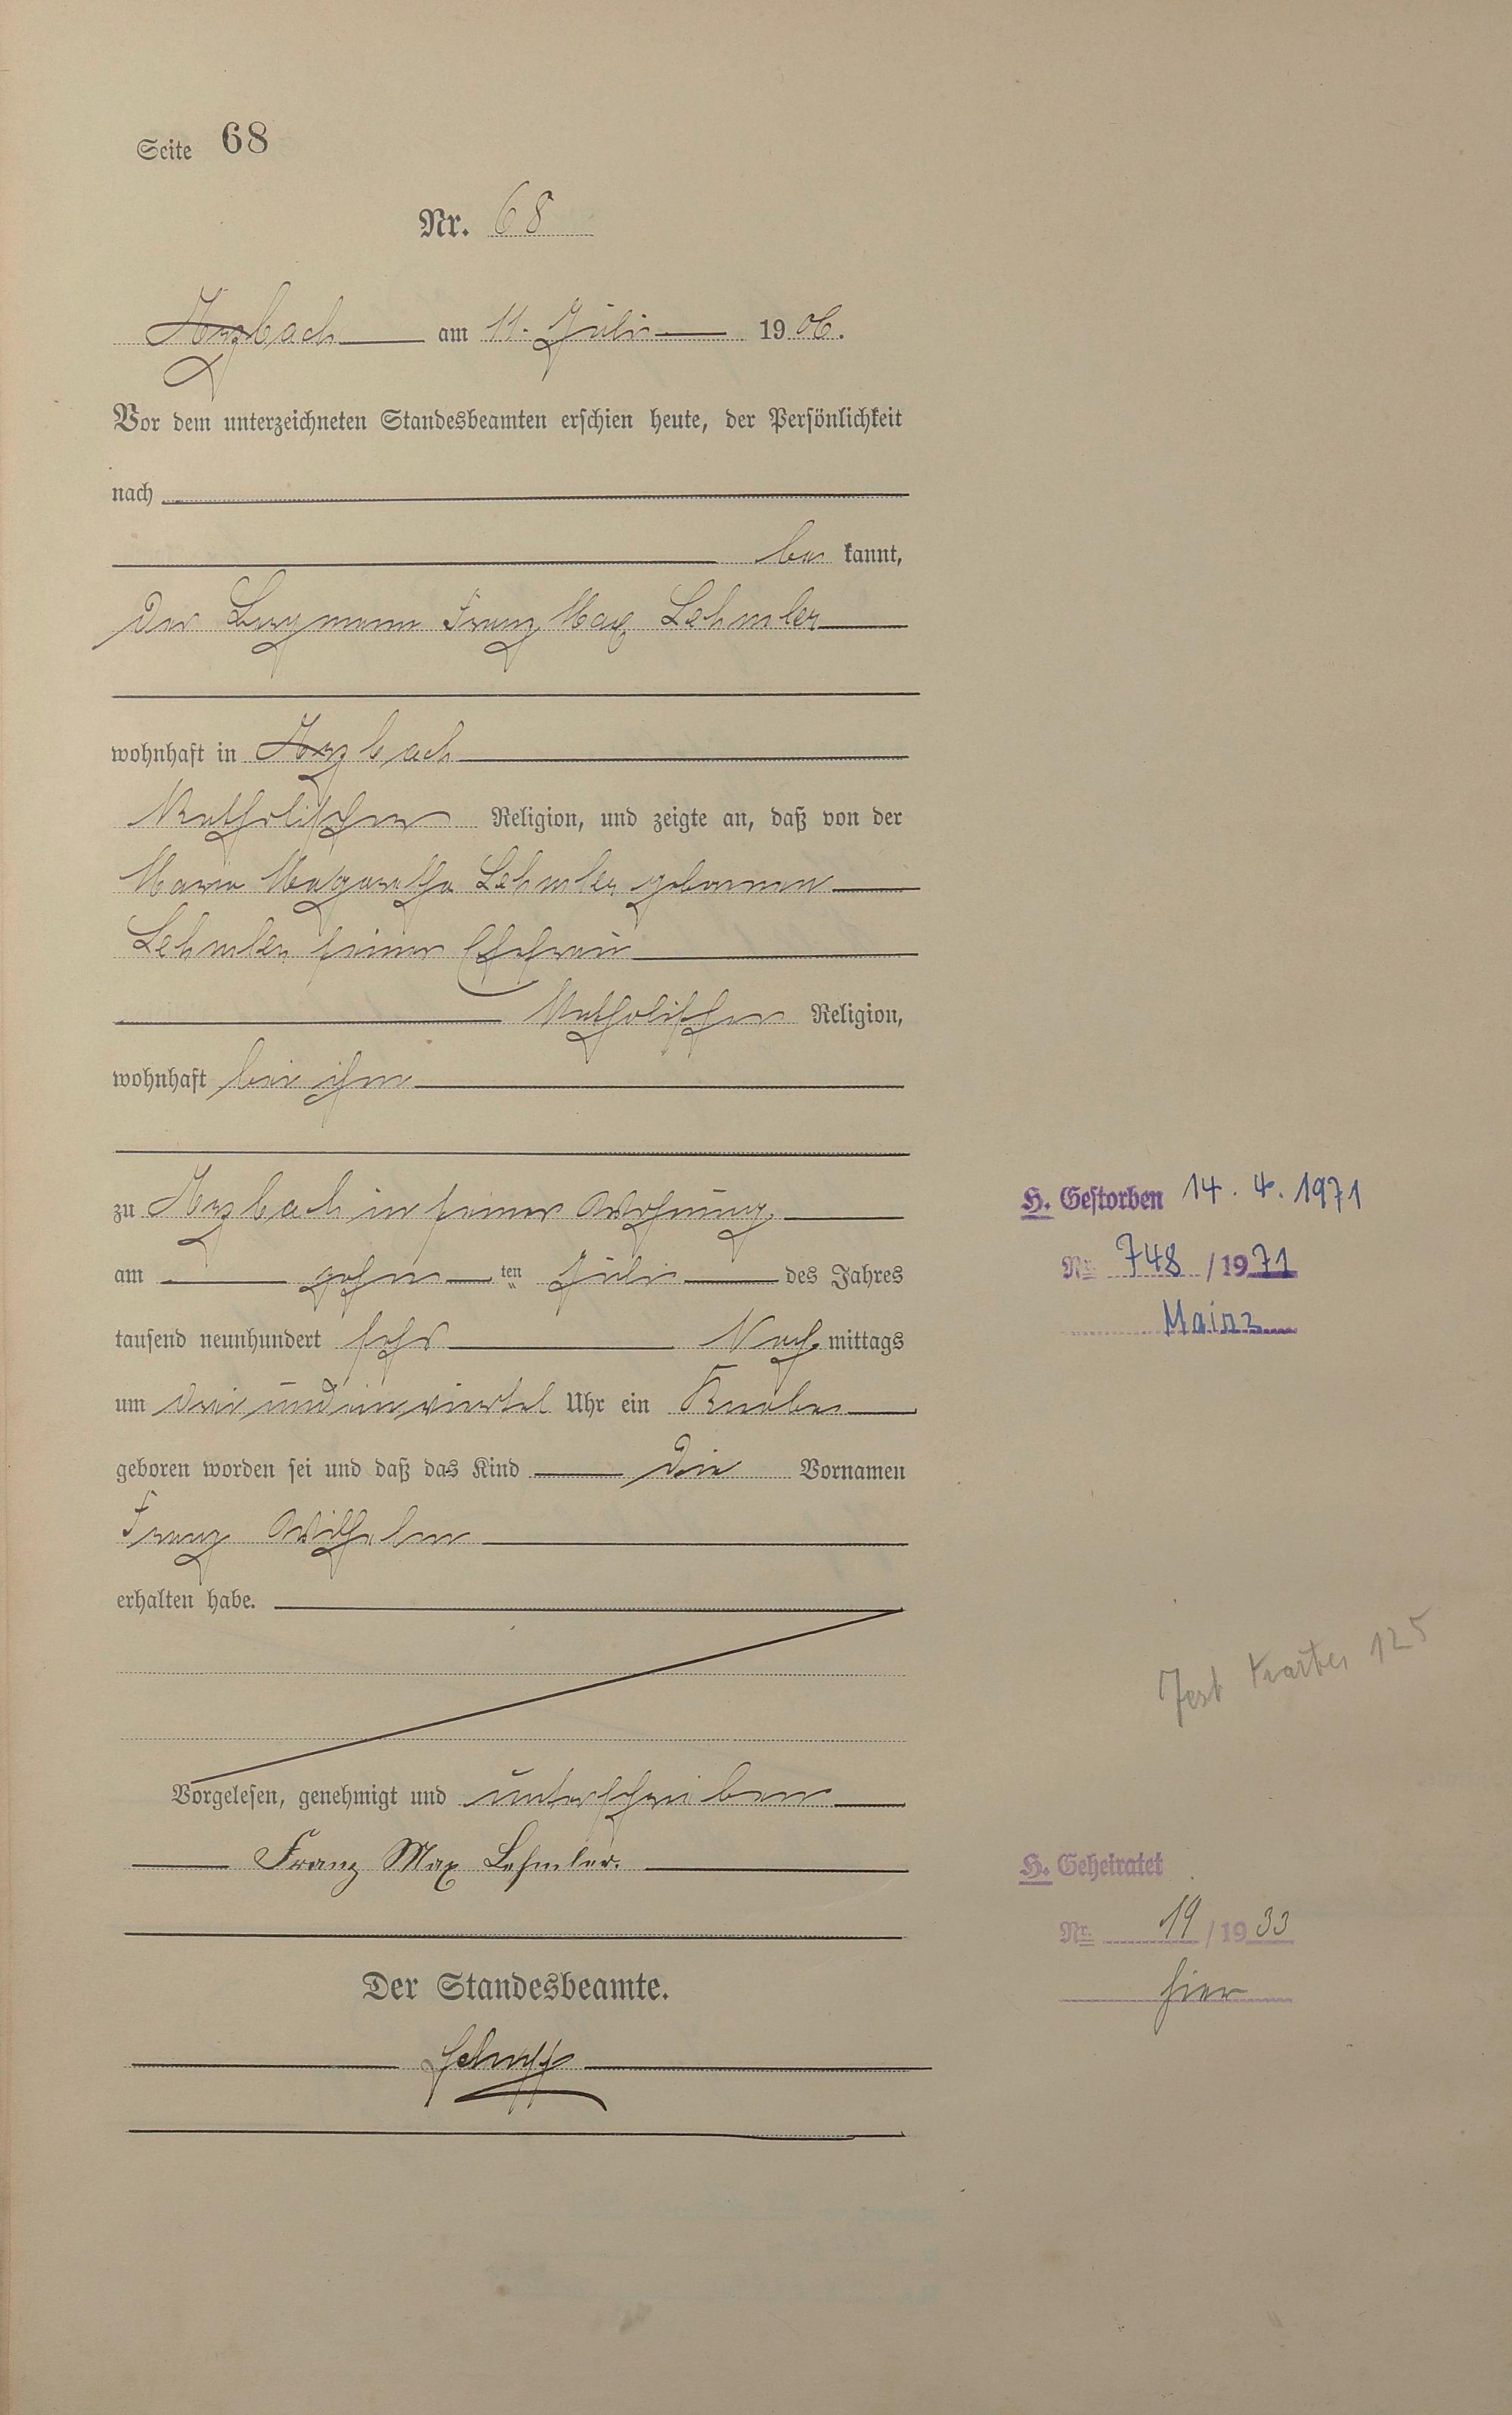 Seite 68
Nr. 68
Arzbach am 11. Juli 1906.
Vor dem unterzeichneten Standesbeamten erschien heute, der Persönlichkeit
nach
be kannt,
der Bergmann Franz Max Lehmler
wohnhaft in Arzbach
katholischer Religion, und zeigte an, daß von der
Maria Magaretha Lehmler geborenen
Lehmler seiner Ehefrau
katholischer Religion,
wohnhaft bei ihm
zu Arzbach in seiner Wohnung
am zehn ten Juli des Jahres
tausend neunhundert sechs Nach mittags
um drei und ein viertel Uhr ein Knabe
geboren worden sei und daß das Kind die Vornamen
Franz Wilhelm
erhalten habe.
Vorgelesen, genehmigt und unterschrieben
Franz Max Lehmler.
Der Standesbeamte.
H. Gestorben 14. 4. 1971
Nr. 748 / 1971
Mainz
125
H. Geheiratet
Nr. 19 / 1933
hier